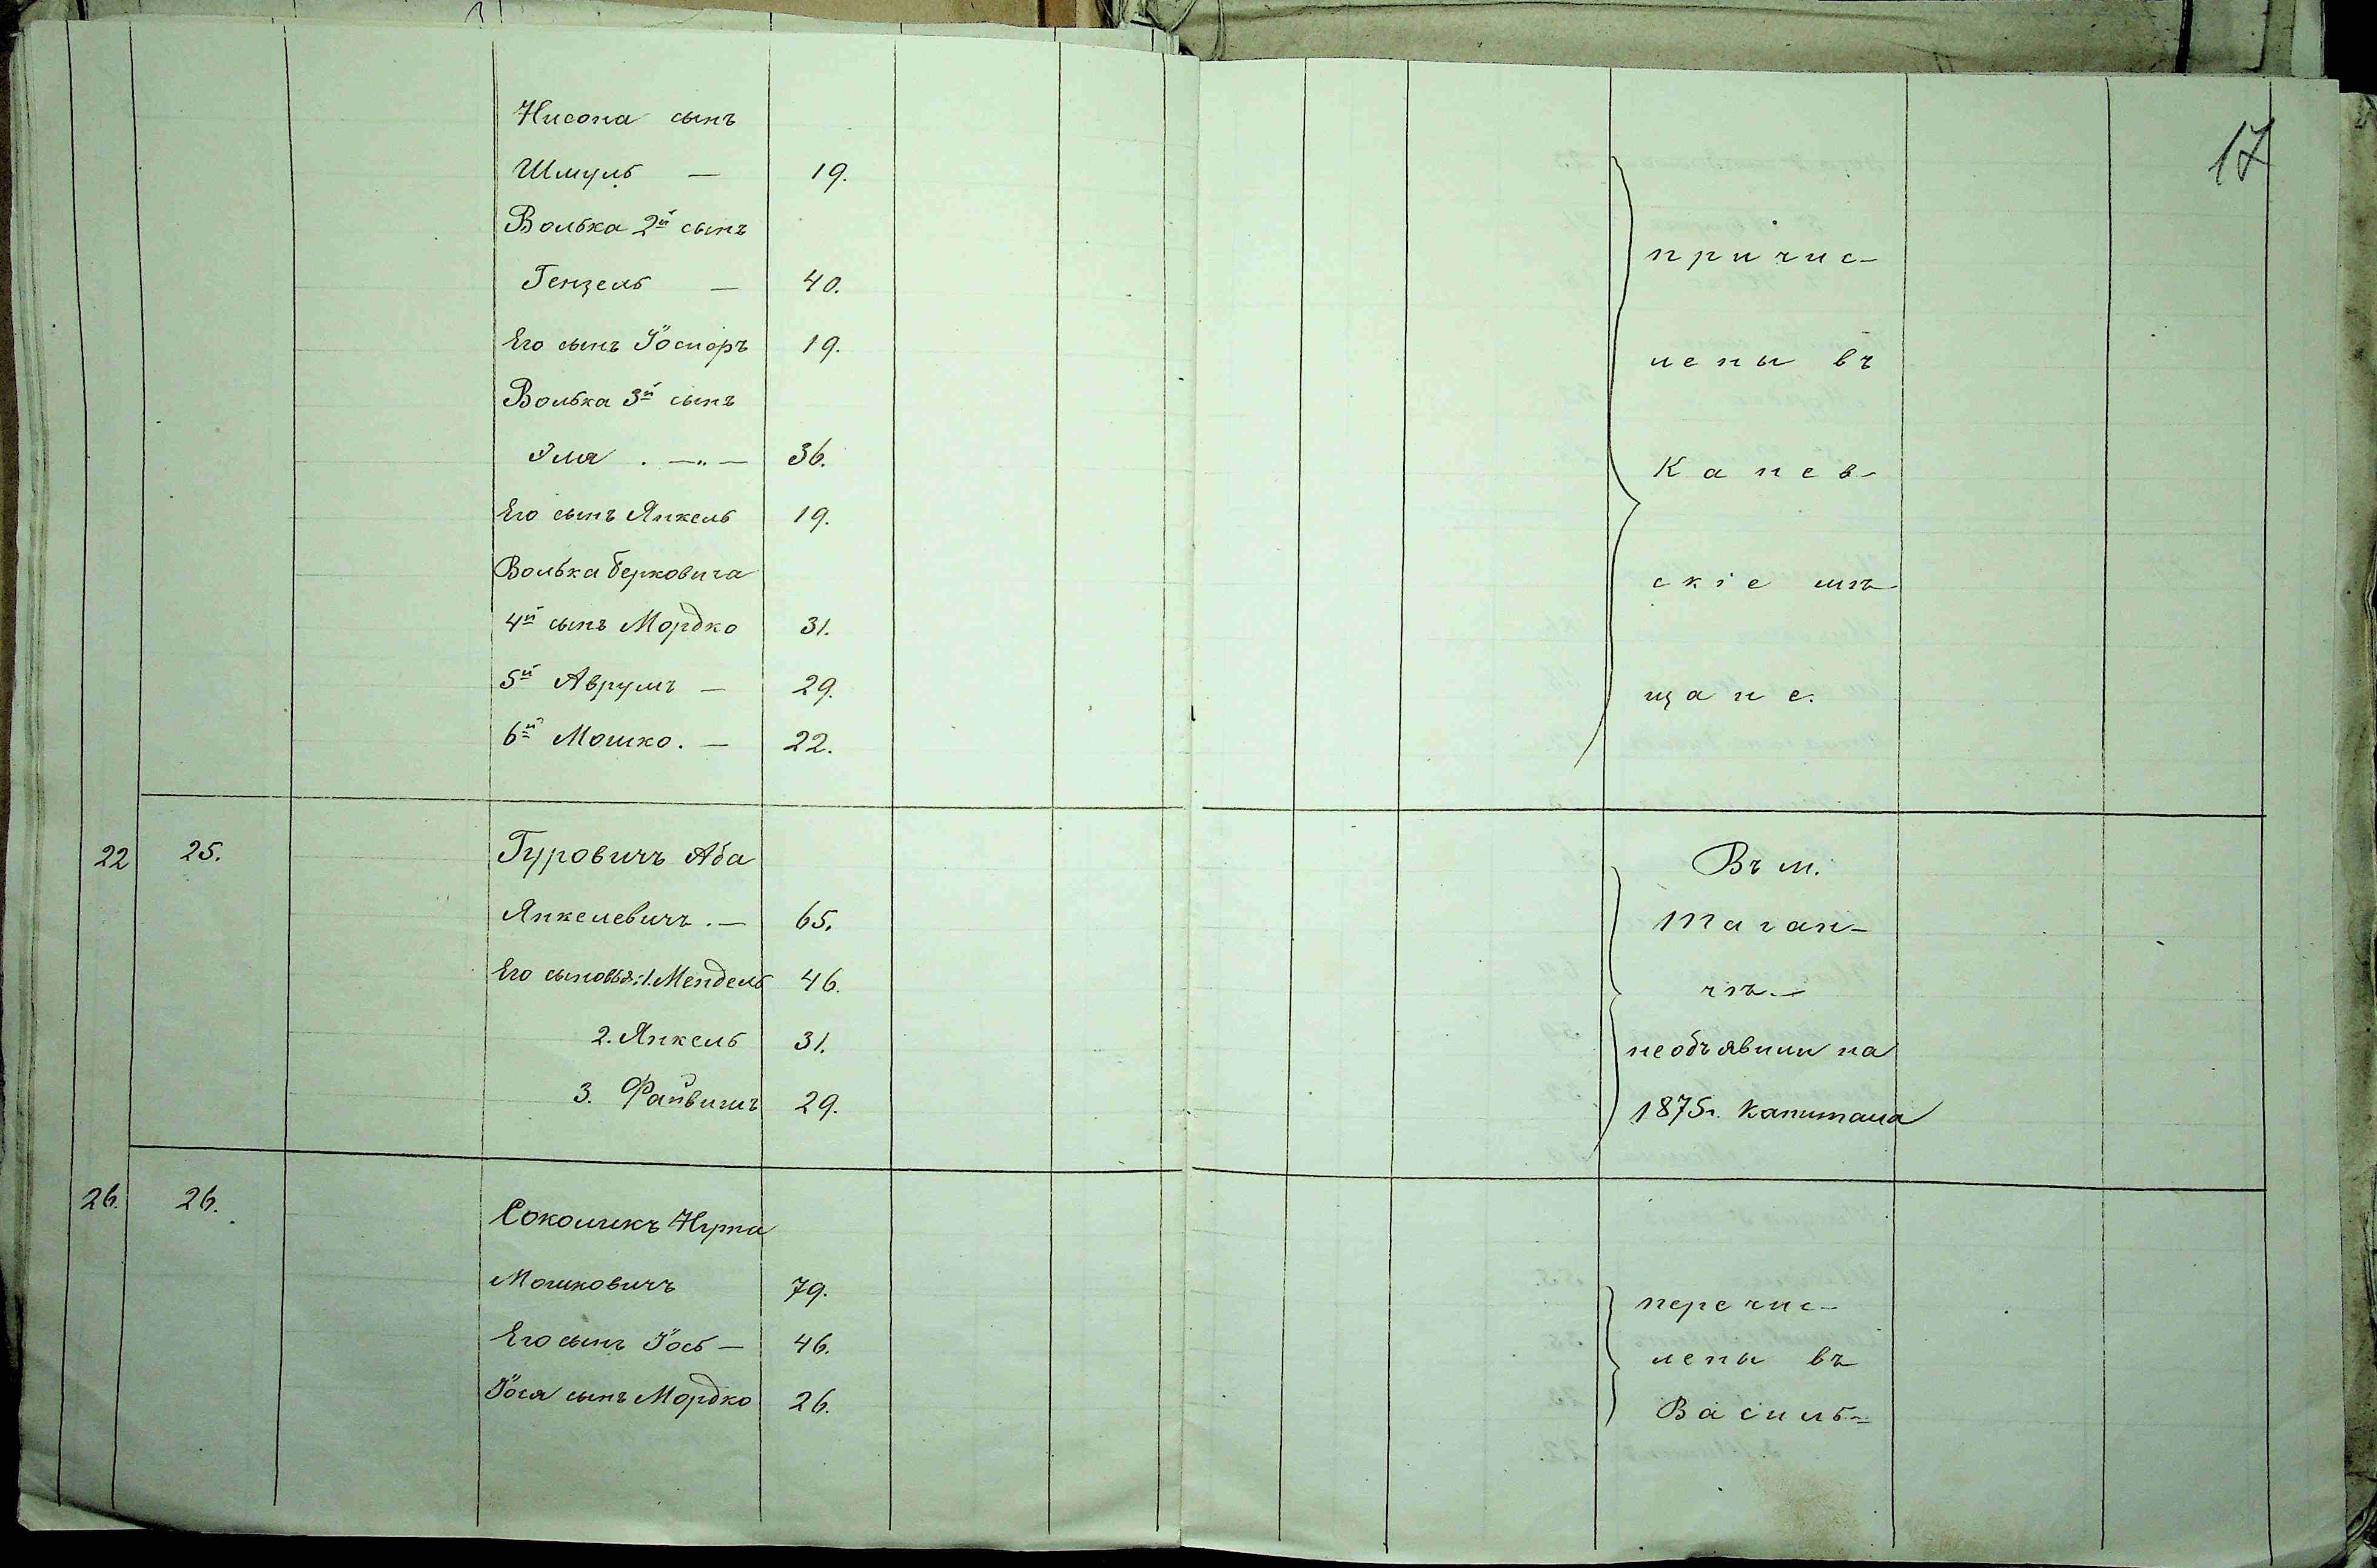 17
Нисона сынъ
Шмуль — 19.
Волька 2й сынъ
Гензель — 40.
Его сынъ Іосіоръ 19.
Волька 3й сынъ
Эля . —„— 36.
Его сынъ Янкель 19.
Волька Берковича
4й сынъ Мордко 31.
5й Аврумъ — 29.
6й Мошко. — 22.
причис-
лены въ
Канев-
скіе мѣ-
щане.
22 25. Гуровичъ Аба
Янкелевичъ. — 65.
Его сыновья: 1. Мендель 46.
2. Янкель 31.
3. Файвишъ 29.
Въ м.
Таган-
чѣ. —
необъявили на
1875г. капитала
26. 26. Соколикъ Нута
Мошковичъ 79.
Его сынъ Іось — 46.
Іося сынъ Мордко 26.
перечис-
лены въ
Василь-